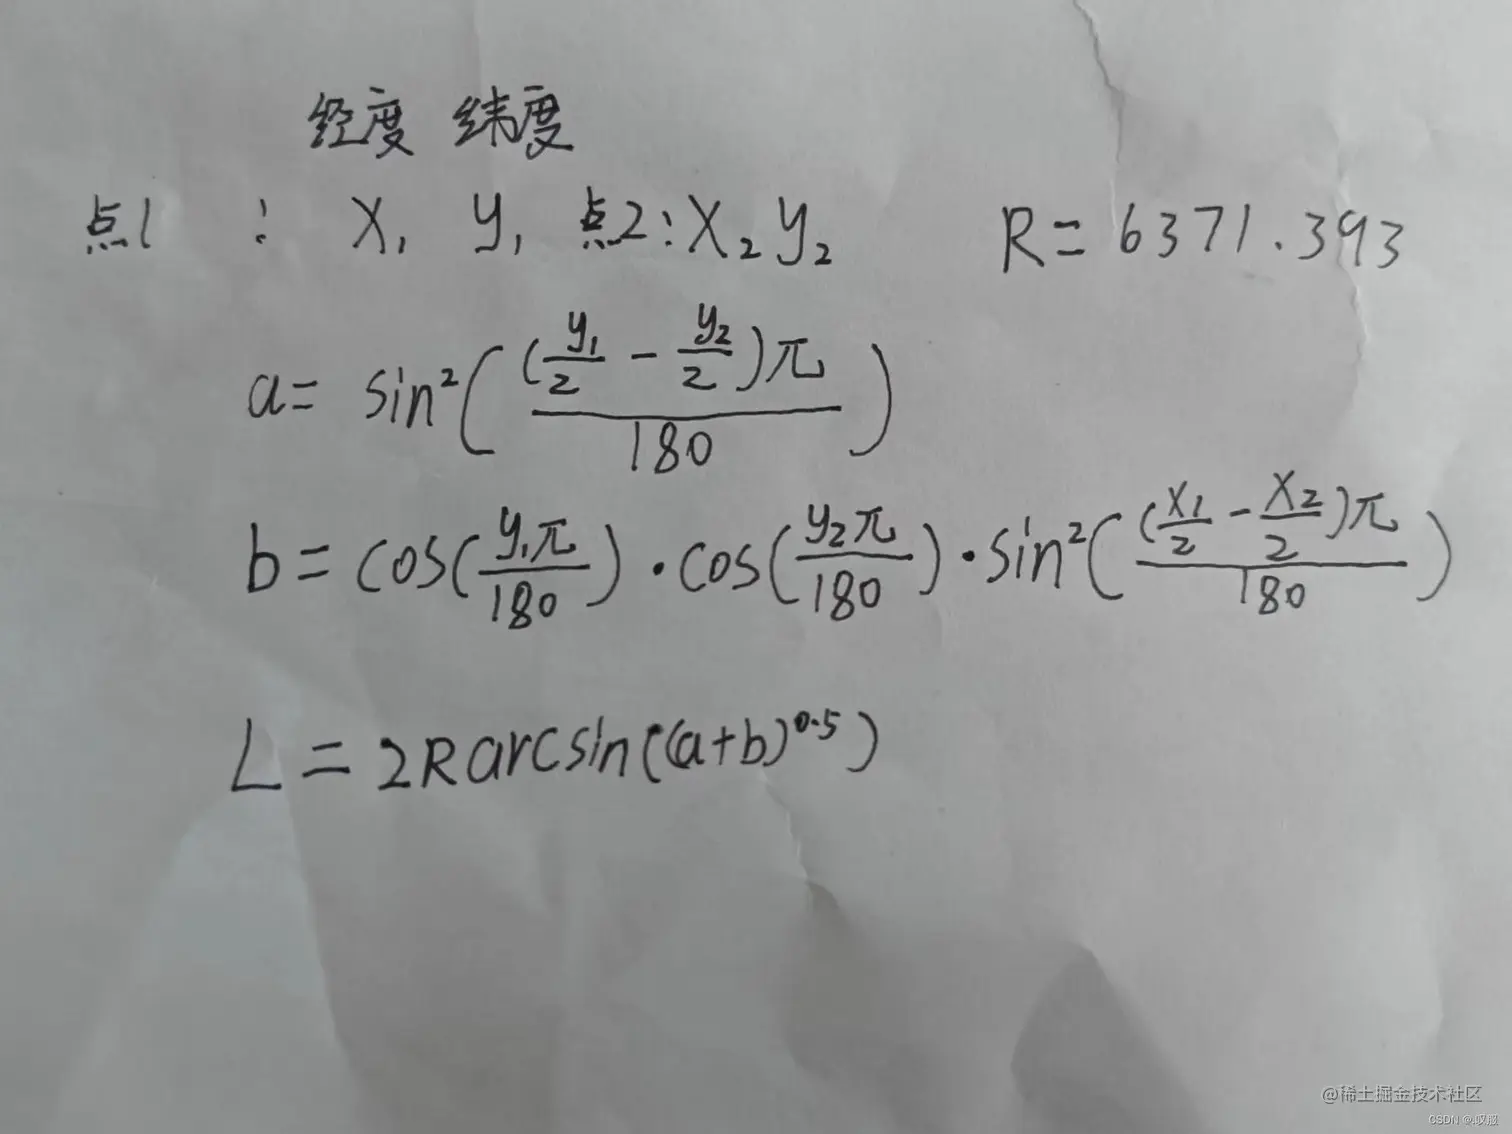 经度 纬度
点1 : X₁ y₁ 点2:X₂ y₂ R=6371.393
a= sin²((y₁/2 - y₂/2)π/180)
b=cos(y₁π/180)·cos(y₂π/180)·sin²((x₁/2 - x₂/2)π/180)
L=2Rarcsin((a+b)^0.5)
@稀土掘金技术社区